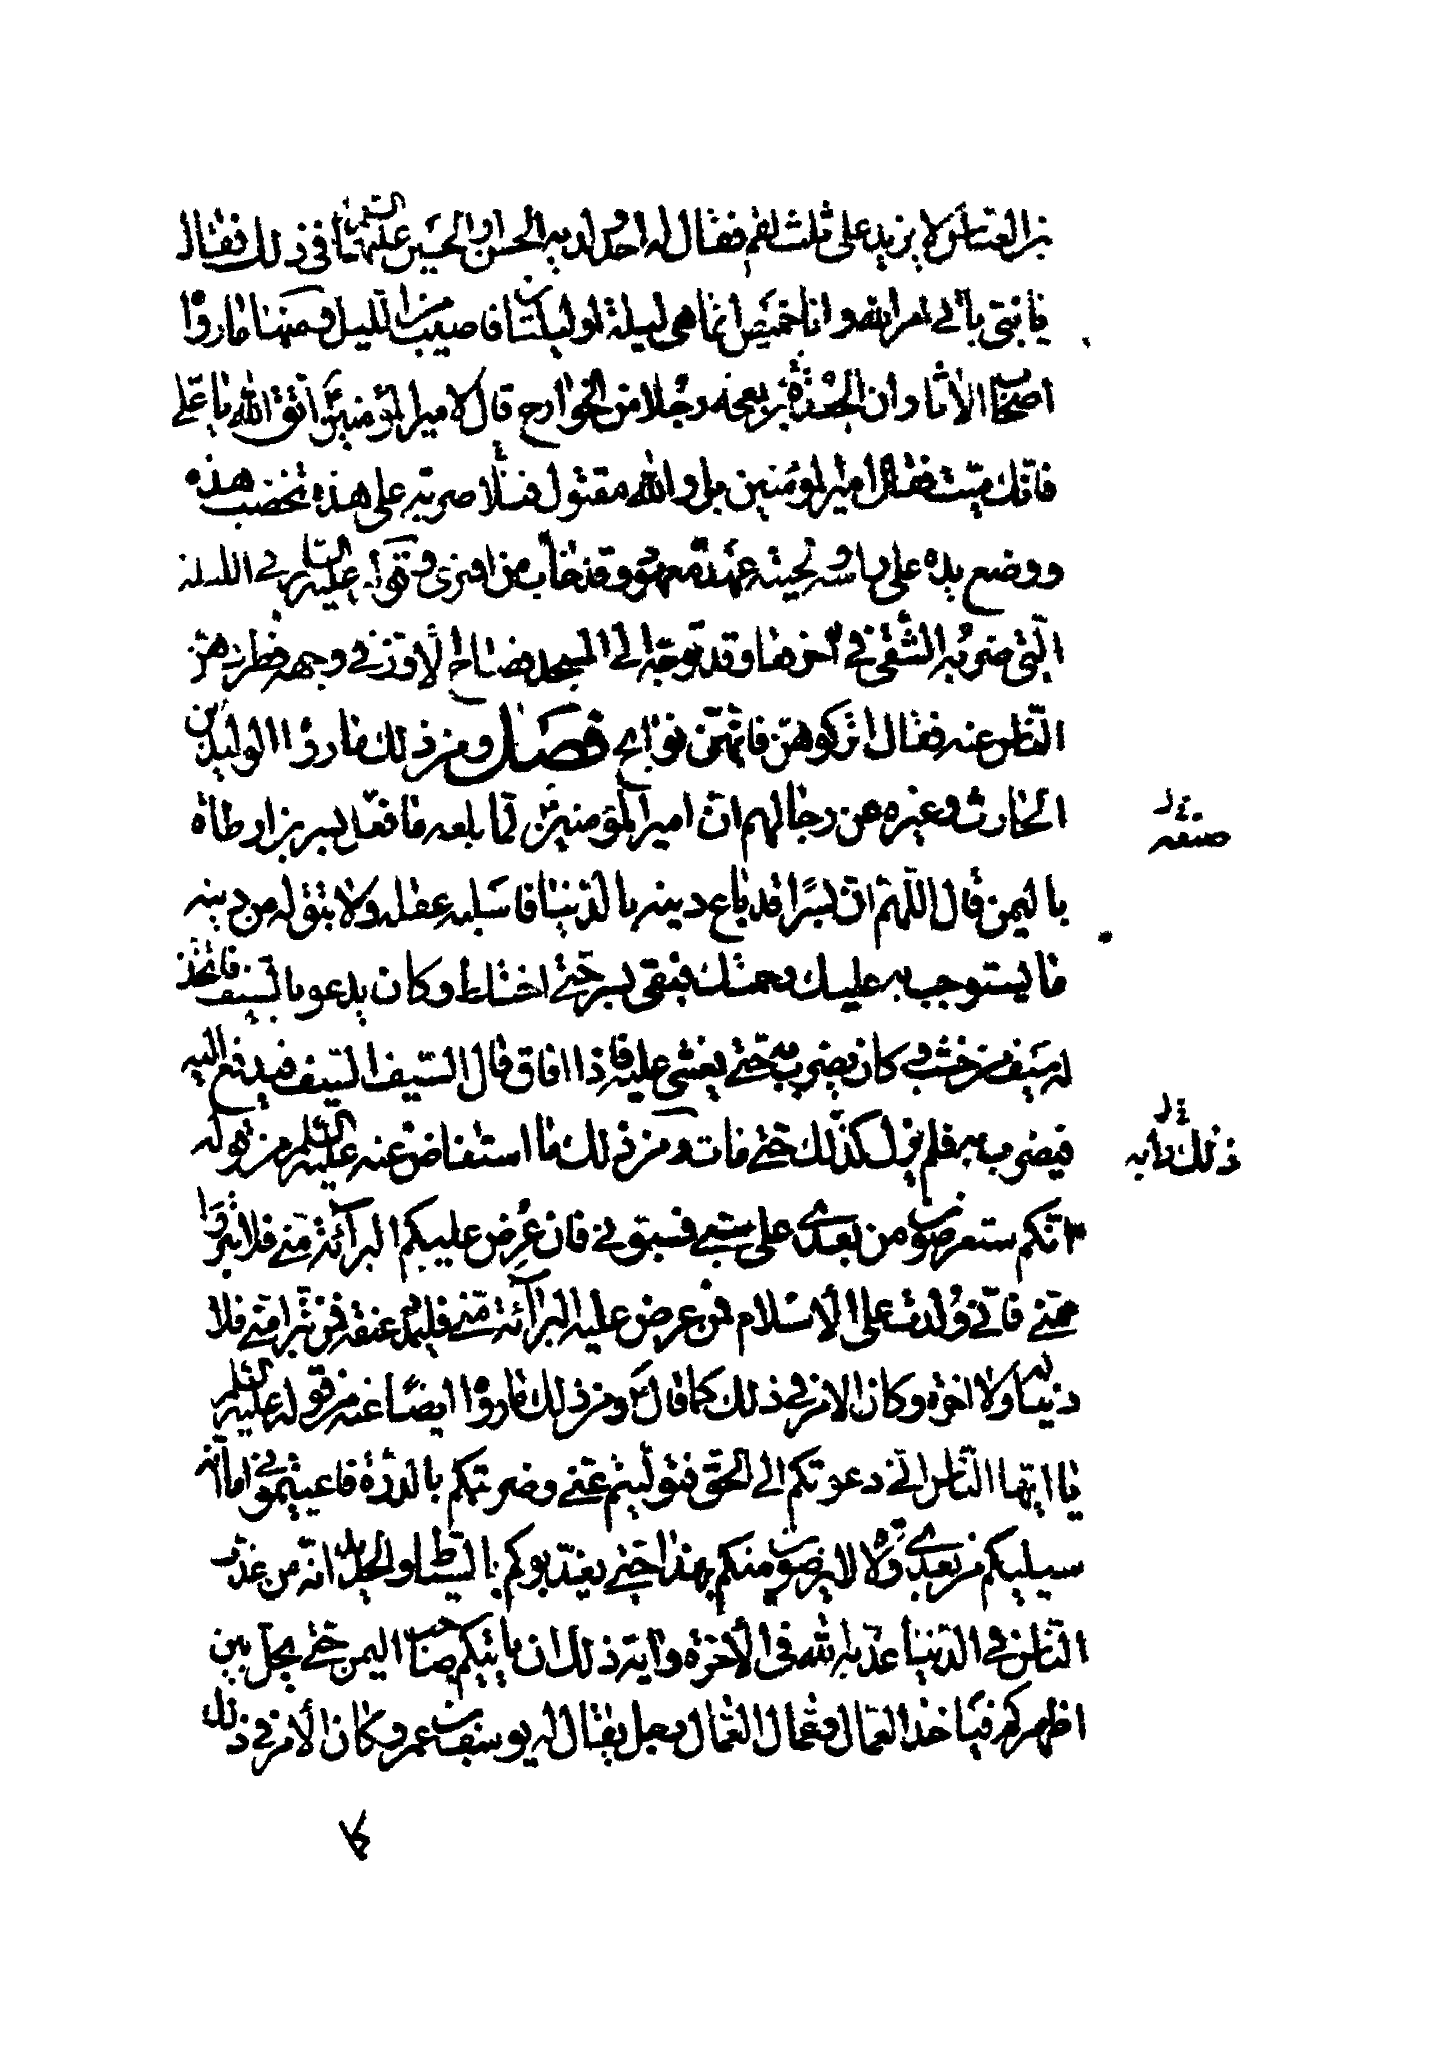 بن العباس لا يزيد على ثلث لقم فقال له احد ولديه الحسن او الحسين عليهما السلم في ذلك فقال
يا بني ياتي امر الله وانا خميص انما هي ليلة او ليلتان فاصيب من الليل ومنها ما رووا
اصحاب الاثار وان الجعد بن بعجة رجلا من الخوارج قال لامير المؤمنين اتق الله يا علي
فانك ميت فقال امير المؤمنين بل والله مقتول قتلا ضربة على هذه تخضب هذه
ووضع يده على راسه ولحيته عهد معهود وقد خاب من افترى وقوله عليه السلم في الليلة
التي ضربه الشقي في آخرها وقد توجه الى المسجد فصاح الاوز في وجهه فطردهن
الناس عنه فقال اتركوهن فانهن نوايح فصل ومن ذلك ما رووا الوليد بن
الحارث وغيره عن رجالهم ان امير المؤمنين لما بلغه ما فعل بسر بن ارطاة
باليمن قال اللهم ان بسرا قد باع دينه بالدنيا فاسلبه عقله ولا تبق له من دينه
ما يستوجب به عليك رحمتك فبقي بسر حتى اختلط وكان يدعو بالسيف فاتخذ
له سيف من خشب كان يضرب به حتى يغشى عليه فاذا افاق قال السيف السيف فيدفع اليه
فيضرب به فلم يزل كذلك حتى مات ومن ذلك ما استفاض عنه عليه السلم من قوله
انكم ستعرضون من بعدي على سبي فسبوني فان عرض عليكم البرآئة مني فلا تبرؤا
مني فاني ولدت على الاسلام فمن عرض عليه البرآئة مني فليمد عنقه فمن تبرأ مني فلا
دنيا له ولا اخرة وكان الامر في ذلك كما قال ومن ذلك ما رووا ايضا عنه من قوله عليه السلم
يا ايها الناس اني دعوتكم الى الحق فتوليتم عني وضربتكم بالدرة فاعييتموني اما انه
سيليكم من بعدي ولاة لا يرضون منكم بهذا حتى يعذبوكم بالسياط والحديد انه من عذب
الناس في الدنيا عذبه الله في الآخرة وآية ذلك ان ياتيكم صاحب اليمن حتى يحل بين
اظهركم فياخذ العمال وعمال العمال رجل يقال له يوسف بن عمرو وكان الامر في ذلك
كا
صنعه
ذلك دابه